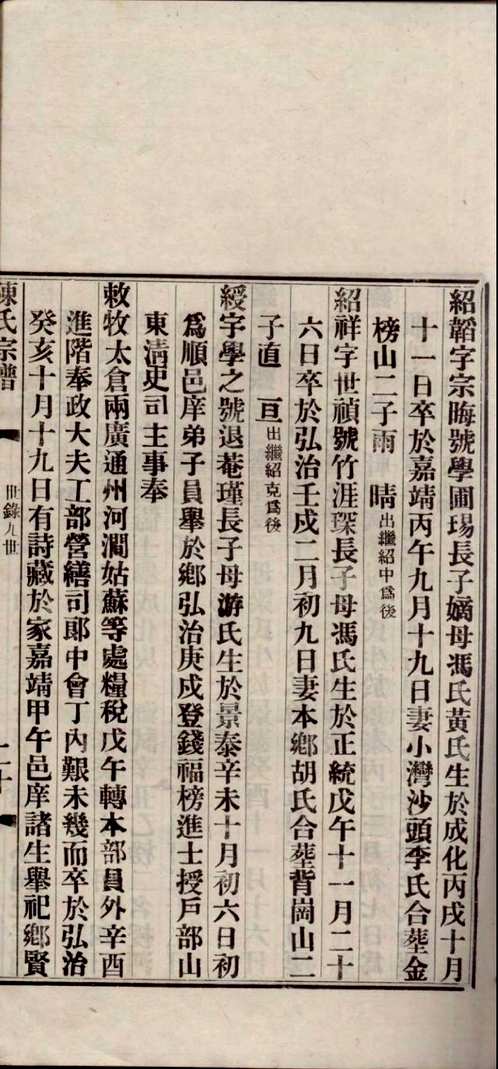 紹韜字宗晦號學圃瑒長子嫡母馮氏黃氏生於成化丙戌十月
十一日卒於嘉靖丙午九月十九日妻小灣沙頭李氏合塟金
榜山二子雨 晴出繼紹中爲後
紹祥字世禎號竹涯琛長子母馮氏生於正統戊午十一月二十
六日卒於弘治壬戌二月初九日妻本鄉胡氏合塟背崗山二
子直 亘出繼紹克爲後
綬字學之號退菴瑾長子母游氏生於景泰辛未十月初六日初
爲順邑庠弟子員舉於鄉弘治庚戌登錢福榜進士授戶部山
東淸吏司主事奉
敕牧太倉兩廣通州河澗姑蘇等處糧稅戊午轉本部員外辛酉
進階奉政大夫工部營繕司郎中會丁內艱未幾而卒於弘治
癸亥十月十九日有詩藏於家嘉靖甲午邑庠諸生舉祀鄉賢
陳氏宗譜 世錄九世 二十